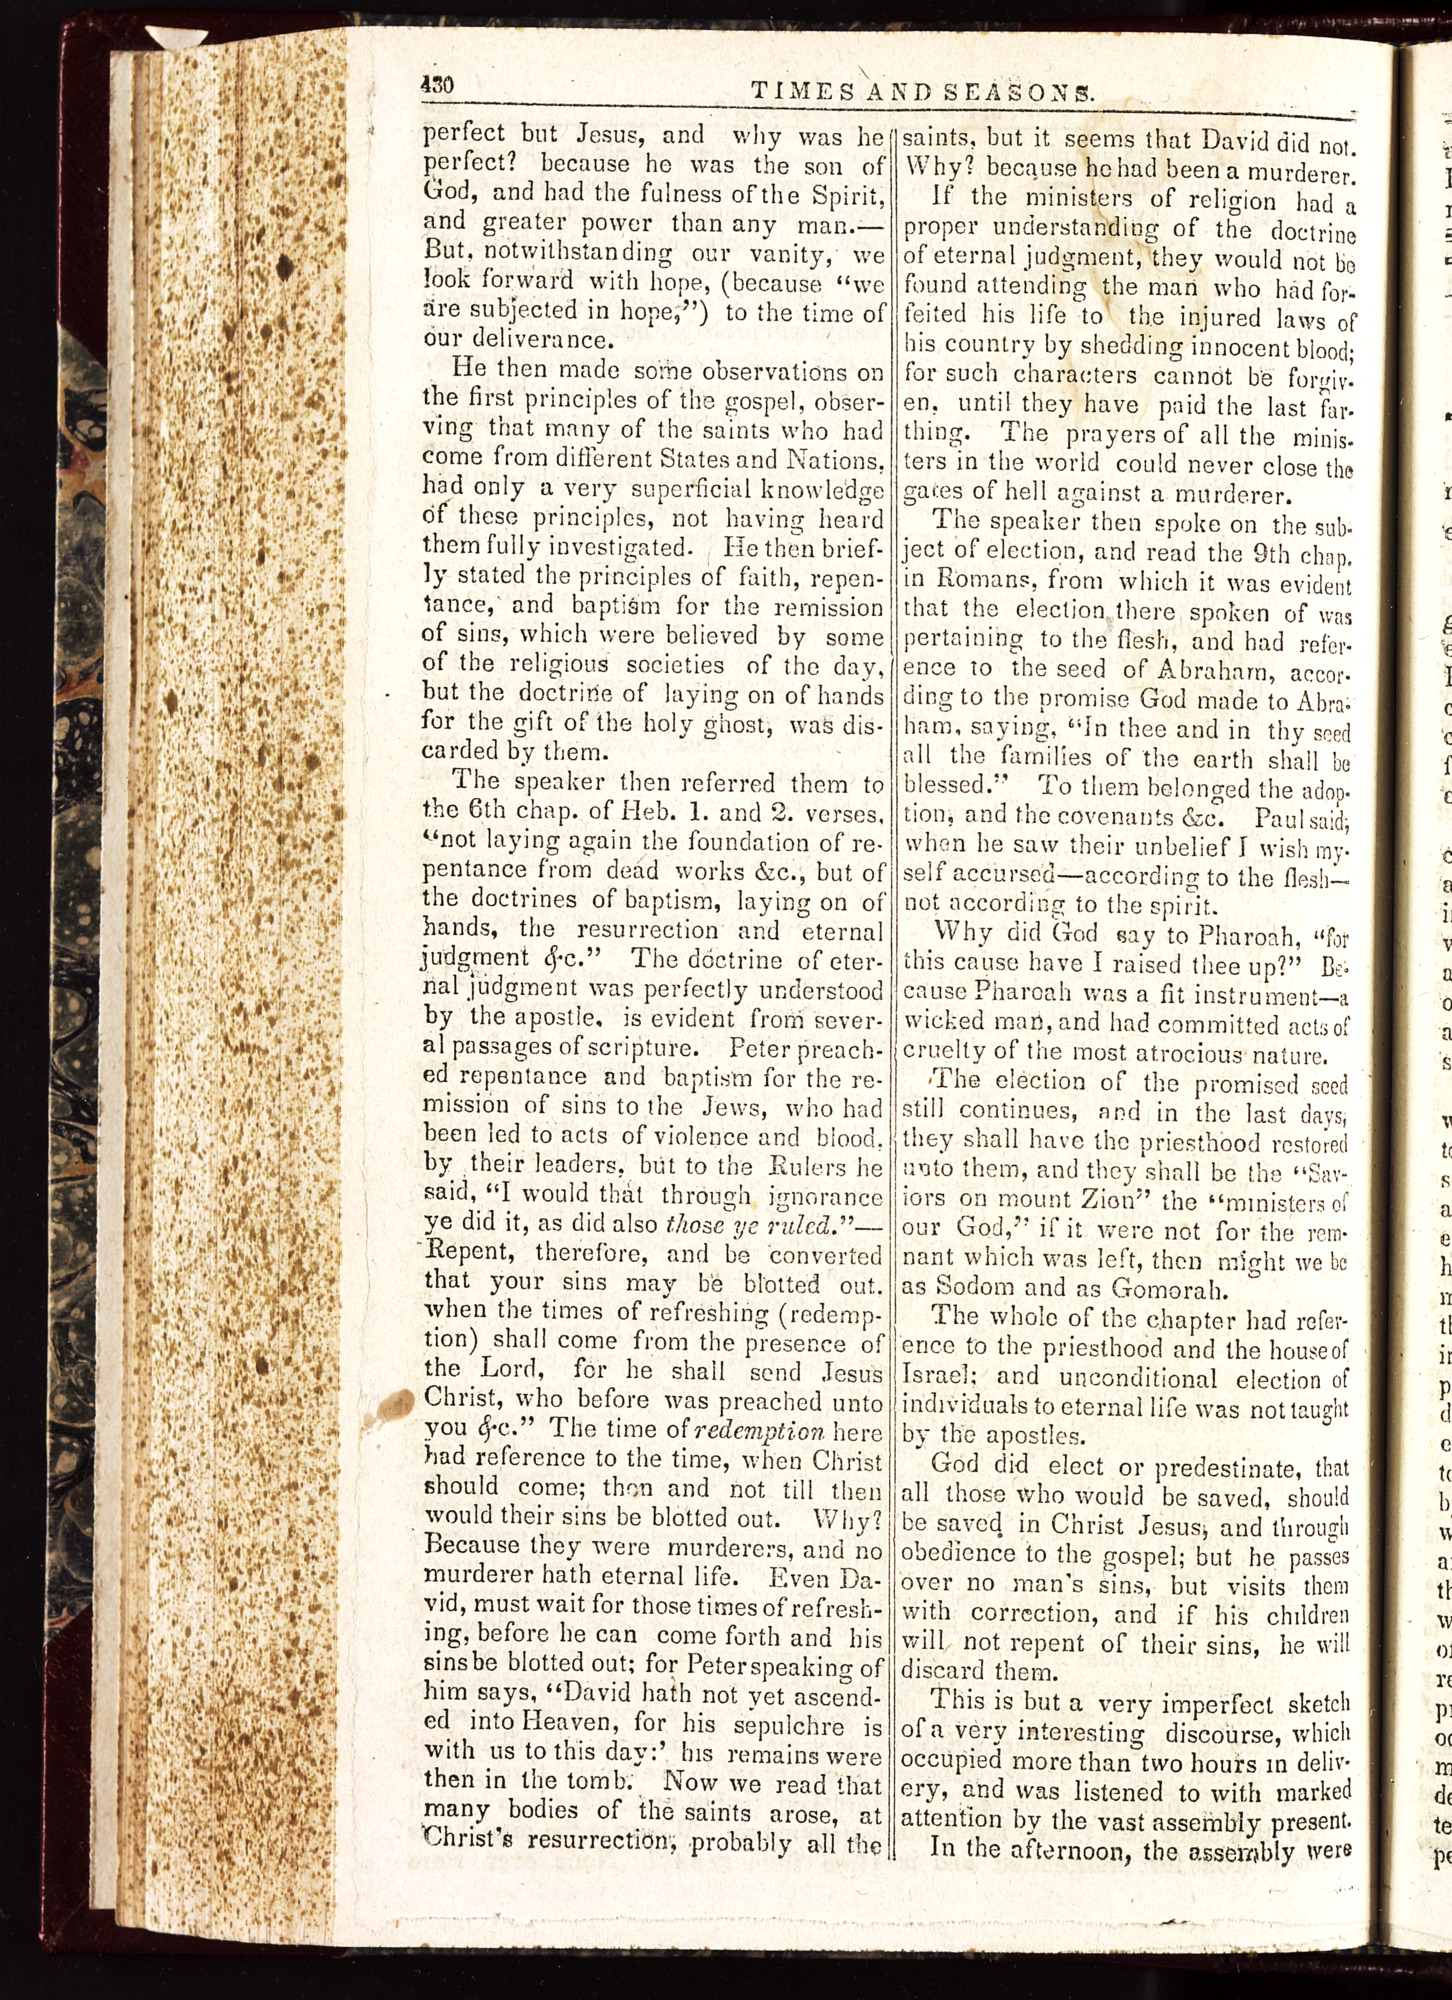 430
TIMES AND SEASONS.
perfect but Jesus, and why was he
perfect? because he was the son of
God, and had the fulness of the Spirit,
and greater power than any man.—
But, notwithstanding our vanity, we
look forward with hope, (because "we
are subjected in hope,") to the time of
our deliverance.
He then made some observations on
the first principles of the gospel, obser-
ving that many of the saints who had
come from different States and Nations,
had only a very superficial knowledge
of these principles, not having heard
them fully investigated. He then brief-
ly stated the principles of faith, repen-
tance, and baptism for the remission
of sins, which were believed by some
of the religious societies of the day,
but the doctrine of laying on of hands
for the gift of the holy ghost, was dis-
carded by them.
The speaker then referred them to
the 6th chap. of Heb. 1. and 2. verses,
"not laying again the foundation of re-
pentance from dead works &c., but of
the doctrines of baptism, laying on of
hands, the resurrection and eternal
judgment &c." The doctrine of eter-
nal judgment was perfectly understood
by the apostle, is evident from sever-
al passages of scripture. Peter preach-
ed repentance and baptism for the re-
mission of sins to the Jews, who had
been led to acts of violence and blood,
by their leaders, but to the Rulers he
said, "I would that through ignorance
ye did it, as did also those ye ruled."—
Repent, therefore, and be converted
that your sins may be blotted out,
when the times of refreshing (redemp-
tion) shall come from the presence of
the Lord, for he shall send Jesus
Christ, who before was preached unto
you &c." The time of redemption here
had reference to the time, when Christ
should come; then and not till then
would their sins be blotted out. Why?
Because they were murderers, and no
murderer hath eternal life. Even Da-
vid, must wait for those times of refresh-
ing, before he can come forth and his
sins be blotted out; for Peter speaking of
him says, "David hath not yet ascend-
ed into Heaven, for his sepulchre is
with us to this day:' his remains were
then in the tomb. Now we read that
many bodies of the saints arose, at
Christ's resurrection, probably all the
saints, but it seems that David did not.
Why? because he had been a murderer.
If the ministers of religion had a
proper understanding of the doctrine
of eternal judgment, they would not be
found attending the man who had for-
feited his life to the injured laws of
his country by shedding innocent blood;
for such characters cannot be forgiv-
en, until they have paid the last far-
thing. The prayers of all the minis-
ters in the world could never close the
gates of hell against a murderer.
The speaker then spoke on the sub-
ject of election, and read the 9th chap.
in Romans, from which it was evident
that the election there spoken of was
pertaining to the flesh, and had refer-
ence to the seed of Abraham, accor-
ding to the promise God made to Abra-
ham, saying, "In thee and in thy seed
all the families of the earth shall be
blessed." To them belonged the adop-
tion, and the covenants &c. Paul said,
when he saw their unbelief I wish my-
self accursed—according to the flesh—
not according to the spirit.
Why did God say to Pharoah, "for
this cause have I raised thee up?" Be-
cause Pharoah was a fit instrument—a
wicked man, and had committed acts of
cruelty of the most atrocious nature.
The election of the promised seed
still continues, and in the last days,
they shall have the priesthood restored
unto them, and they shall be the "Sav-
iors on mount Zion" the "ministers of
our God," if it were not for the rem-
nant which was left, then might we be
as Sodom and as Gomorah.
The whole of the chapter had refer-
ence to the priesthood and the house of
Israel; and unconditional election of
individuals to eternal life was not taught
by the apostles.
God did elect or predestinate, that
all those who would be saved, should
be saved in Christ Jesus, and through
obedience to the gospel; but he passes
over no man's sins, but visits them
with correction, and if his children
will not repent of their sins, he will
discard them.
This is but a very imperfect sketch
of a very interesting discourse, which
occupied more than two hours in deliv-
ery, and was listened to with marked
attention by the vast assembly present.
In the afternoon, the assembly were